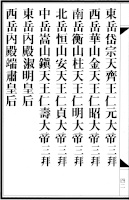 東岳岱宗天齊王仁元大帝三拜
西岳華山金天王仁昭大帝三拜
南岳衡山柱天王仁明大帝三拜
北岳恒山安天王仁貞大帝三拜
中岳嵩山鎮天王仁壽大帝三拜
東岳內殿淑明皇后
西岳內殿端肅皇后